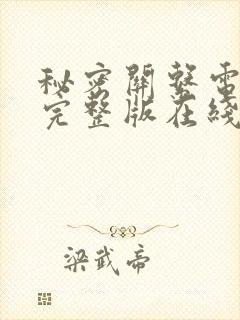 秘密開發電
完整版在綫
梁武帝